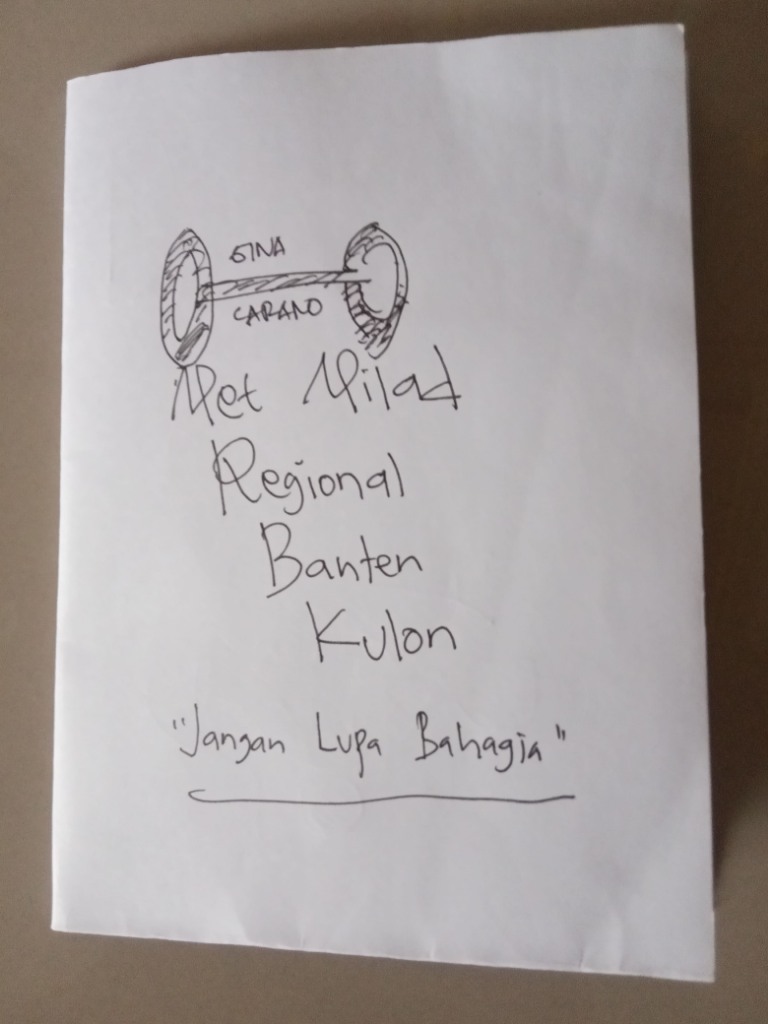 GINA
CARANO
Met Milad
Regional
Banten
Kulon
"Jangan Lupa Bahagia"